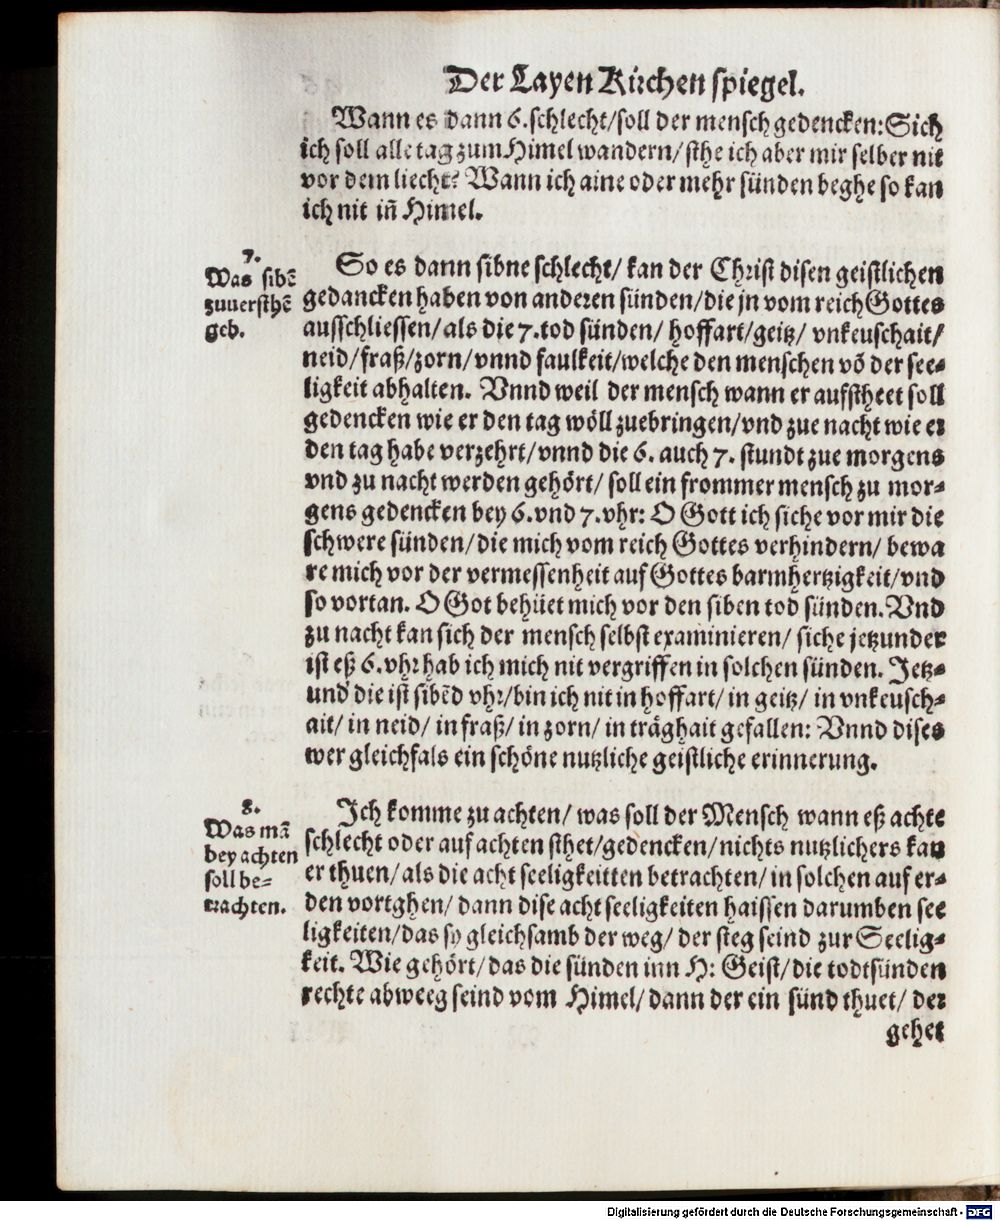 Der Layen Kuchen spiegel.
Wann es dann 6. schlecht/soll der mensch gedencken: Sich
ich soll alle tag zum Himel wandern/ sthe ich aber mir selber nit
vor dem liecht? Wann ich aine oder mehr sünden beghe so kan
ich nit iñ Himel.
7.
Was sibẽ
zuuersthẽ
geb.
So es dann sibne schlecht/ kan der Christ disen geistlichen
gedancken haben von anderen sünden/die jn vom reich Gottes
ausschliessen/als die 7. tod sünden/ hoffart/geitz/ vnkeuschait/
neid/fraß/zorn/vnnd faulkeit/welche den menschen võ der see-
ligkeit abhalten. Vnnd weil der mensch wann er aufstheet soll
gedencken wie er den tag wöll zuebringen/vnd zue nacht wie er
den tag habe verzehrt/vnnd die 6. auch 7. stundt zue morgens
vnd zu nacht werden gehört/ soll ein frommer mensch zu mor-
gens gedencken bey 6. vnd 7. vhr: O Gott ich siche vor mir die
schwere sünden/die mich vom reich Gottes verhindern/ bewa
re mich vor der vermessenheit auf Gottes barmhertzigkeit/vnd
so vortan. O Got behüet mich vor den siben tod sünden. Vnd
zu nacht kan sich der mensch selbst examinieren/ siche jetzunder
ist eß 6. vhr hab ich mich nit vergriffen in solchen sünden. Jetz-
und die ist sibẽd vhr/bin ich nit in hoffart/ in geitz/ in vnkeusch-
ait/ in neid/ in fraß/ in zorn/ in träghait gefallen: Vnnd dises
wer gleichfals ein schöne nutzliche geistliche erinnerung.
8.
Was mã
bey achten
soll be-
trachten.
Ich komme zu achten/ was soll der Mensch wann eß achte
schlecht oder auf achten sthet/gedencken/nichts nutzlichers kan
er thuen/als die acht seeligkeitten betrachten/in solchen auf er-
den vortghen/ dann dise acht seeligkeiten haissen darumben see
ligkeiten/das sy gleichsamb der weg/ der steg seind zur Seelig-
keit. Wie gehört/das die sünden inn H: Geist/die todtsünden
rechte abweeg seind vom Himel/dann der ein sünd thuet/ der
gehet
Digitalisierung gefördert durch die Deutsche Forschungsgemeinschaft - DFG